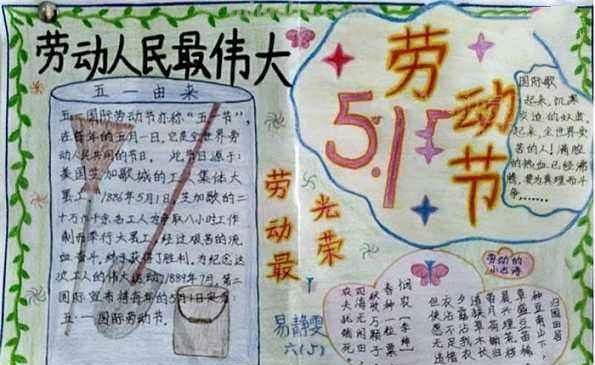 劳动人民最伟大
五一由来
五·一国际劳动节亦称“五一节”,
在每年的五月一日。它是全世界劳
动人民共同的节日。此节日源于:
美国芝加哥城的工人集体大
罢工,1886年5月1日,芝加哥的二
十万六千余名工人为争取八小时工作
制而举行大罢工,经过艰苦的流
血奋斗,终于获得了胜利,为纪念这
次工人的伟大运动,1889年7月,第二
国际宣布将每年的5月1日定为
五·一国际劳动节.
劳动最
光荣
易静雯
劳动节
5.1
国际歌
起来,饥寒
交迫的奴隶,
起来,全世界受
苦的人!满腔
的热血已经沸
腾,要为真理而斗
争,……
劳动的
小古诗
归园田居
种豆南山下
草盛豆苗稀
晨兴理荒秽
带月荷锄归
道狭草木长
夕露沾我衣
衣沾不足惜
但使愿无违
悯农(李绅)
春种一粒粟
秋收万颗子
四海无闲田
农夫犹饿死